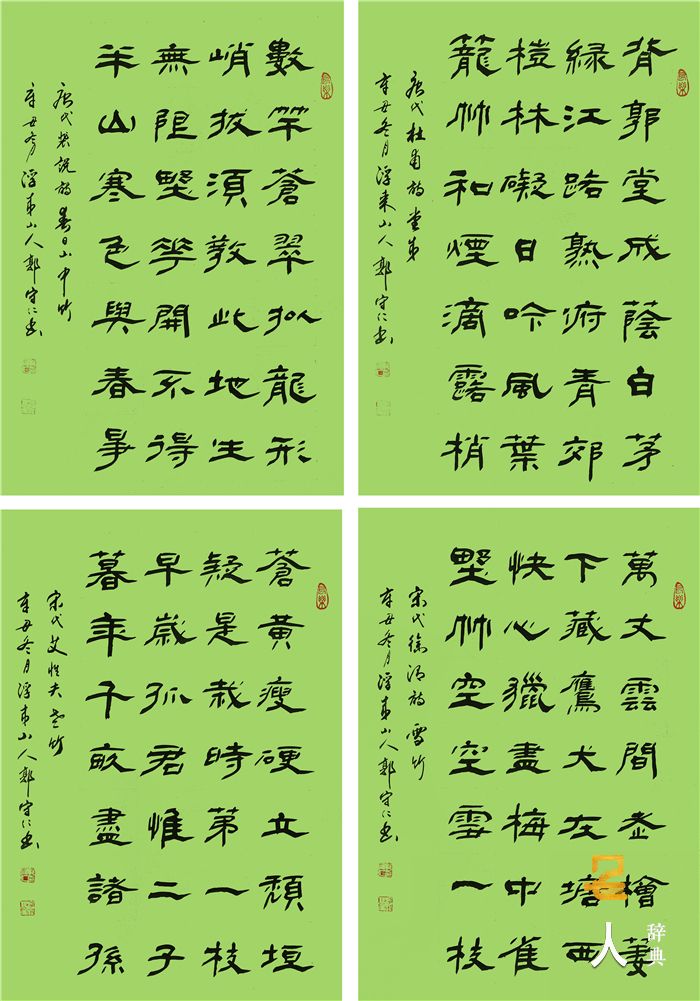 背郭堂成蔭白茅
緑江路熟俯青郊
榿林礙日吟風葉
籠竹和煙滴露梢
唐代杜甫詩堂成
辛丑冬月浮来山人郭守仁書
數竿蒼翠拟龍形
峭拔須教此地生
無限野花開不得
半山寒色與春爭
唐代裴説詩春日山中竹
辛丑冬月浮来山人郭守仁書
萬丈雲間老檜萋
下藏鷹犬在塘西
快心獵盡梅中雀
野竹空空雪一枝
宋代徐渭詩雪竹
辛丑冬月浮来山人郭守仁書
蒼黃瘦硬立頹垣
疑是栽時第一枝
早歲孤君惟二子
暮年千畝盡諸孫
宋代艾性夫老竹
辛丑冬月浮来山人郭守仁書
人辞典